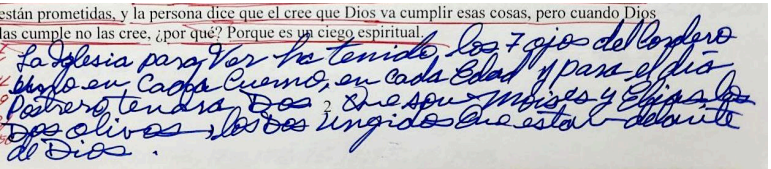 están prometidas, y la persona dice que el cree que Dios va cumplir esas cosas, pero cuando Dios
las cumple no las cree, ¿por qué? Porque es un ciego espiritual.
La Iglesia para Ver ha tenido, los 7 ojos del Cordero
uno en Cada Cuerno, en cada Edad y para el día
Postrero tendrá Dos 2 Que son Moises y Elías los
Dos olivos, los Dos Ungidos Que estan delante
de Dios.